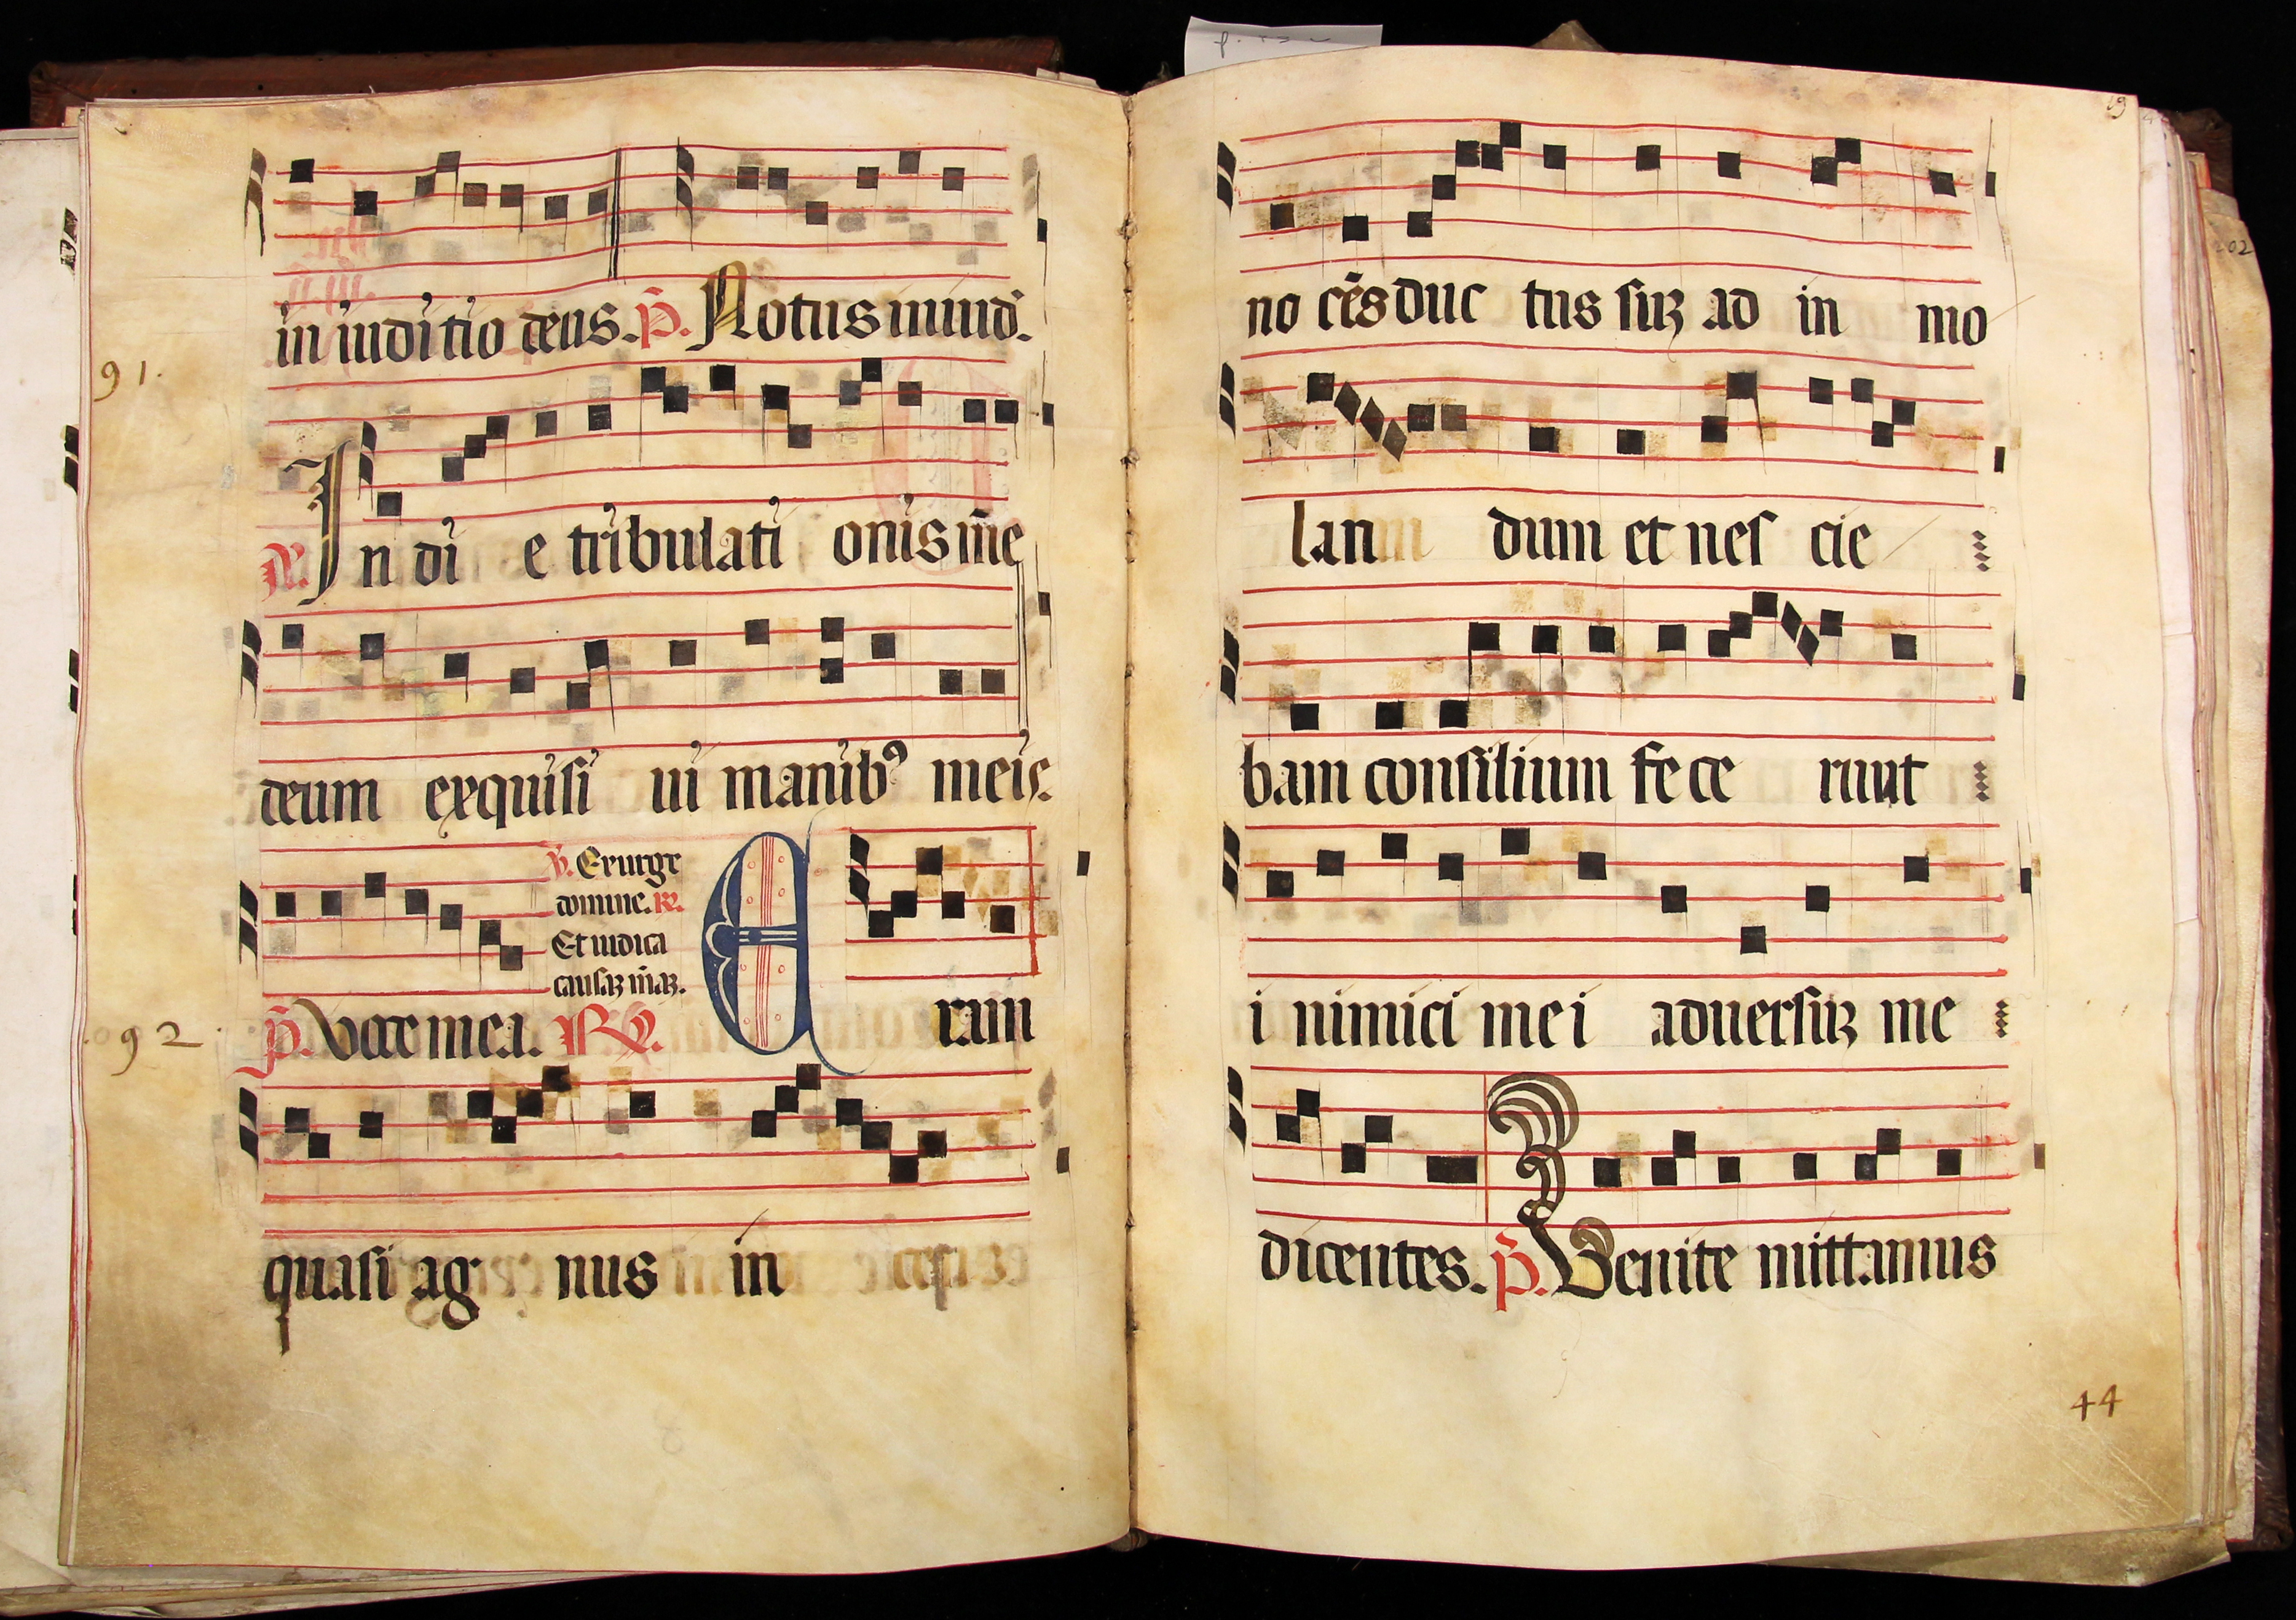 in iuditio deus. p̃. Notus in iud̃.
91.
℟. In di e tribulati onis m̃e
deum exquisi ui manibꝰ meis.
℣. Exurge
domine. ℟.
Et iudica
causaꝫ m̃aꝫ.
092 p̃. Voce mea. ℟. E ram
quasi ag nus in
no cẽs duc tus suꝫ ad in mo
lan dum et nes cie
bam consilium fe ce runt
i nimici me i aduersuꝫ me
dicentes. p̃. Venite mittamus
44